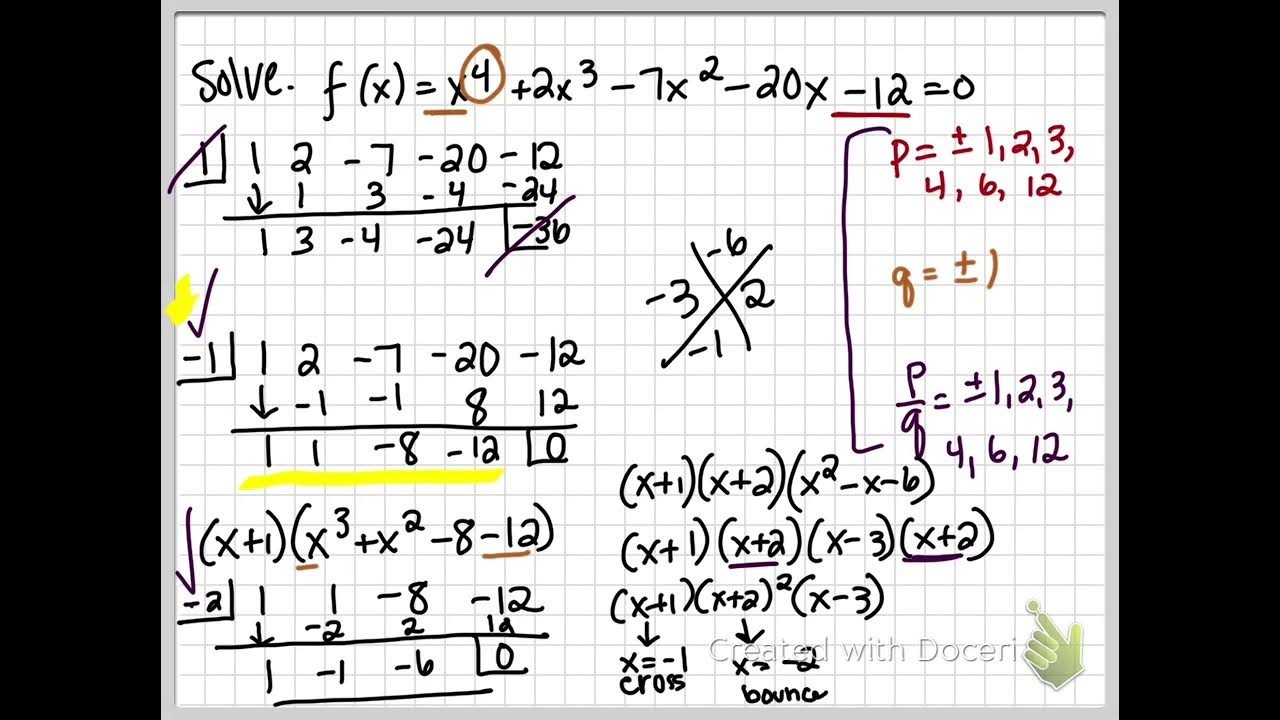 Solve. f(x) = x^4 + 2x^3 - 7x^2 - 20x - 12 = 0
1| 1 2 -7 -20 -12
↓ 1 3 -4 -24
1 3 -4 -24 |-36
P = ± 1, 2, 3,
4, 6, 12
q = ± 1
-6
-3 2
-1
-1| 1 2 -7 -20 -12
↓ -1 -1 8 12
1 1 -8 -12 |0
P/q = ± 1, 2, 3,
4, 6, 12
(x+1)(x^3+x^2-8-12)
-2| 1 1 -8 -12
↓ -2 2 12
1 -1 -6 |0
(x+1)(x+2)(x^2-x-6)
(x+1)(x+2)(x-3)(x+2)
(x+1)(x+2)^2(x-3)
↓ ↓
x=-1 x=-2
cross bounce
Created with Doceri